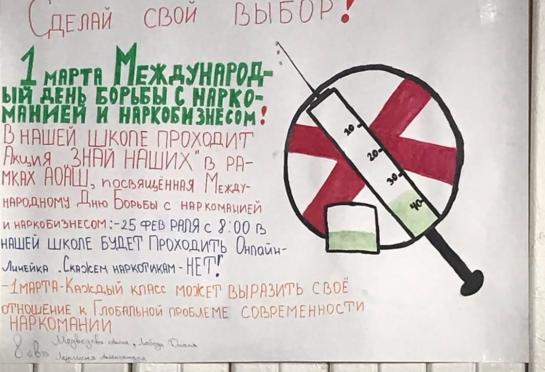 Сделай свой выбор!
1 марта Международ-
ый день борьбы с нарко-
манией и наркобизнесом!
В нашей школе проходит
Акция "Знай наших" в ра-
мках АОАШ, посвящённая Между-
народному Дню Борьбы с наркоманией
и наркобизнесом:-25 фев раля с 8:00 в
нашей школе будет проходить Онлайн-
линейка „Скажем наркотикам - НЕТ!
-1 марта-Каждый класс может выразить своё
отношение к Глобальной проблеме современности
наркомании
10
20
30
40
8 „в"
Александра